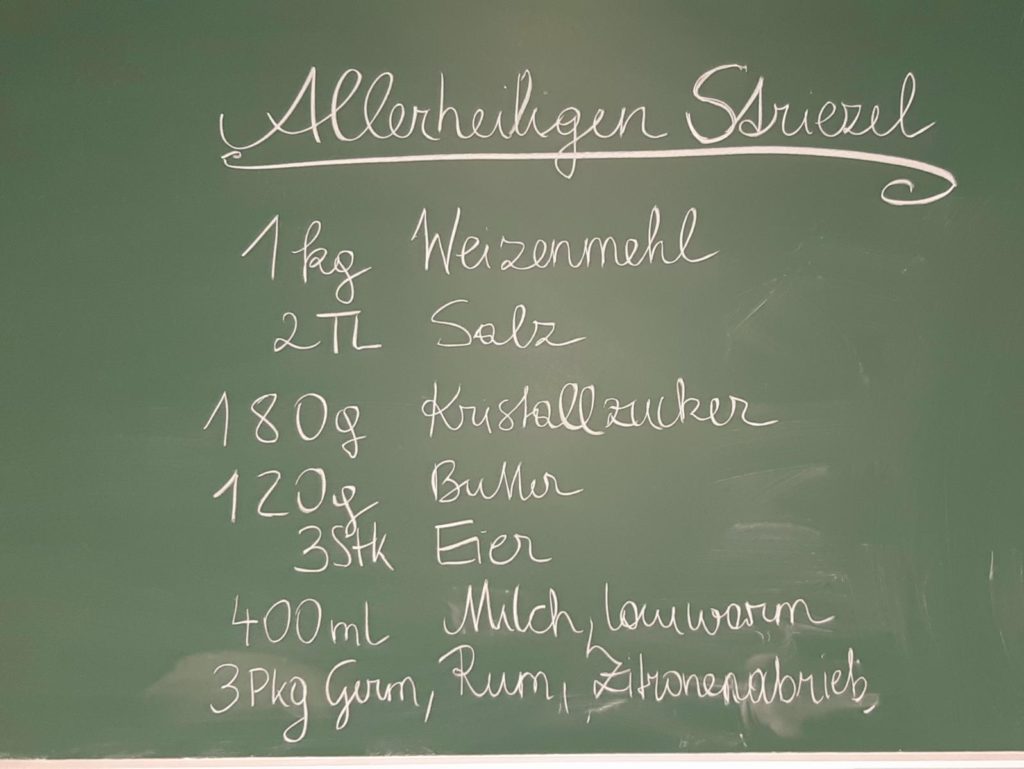 Allerheiligen Striezel
1kg Weizenmehl
2TL Salz
180g Kristallzucker
120g Butter
3Stk Eier
400ml Milch, lauwarm
3Pkg Germ, Rum, Zitronenabrieb,